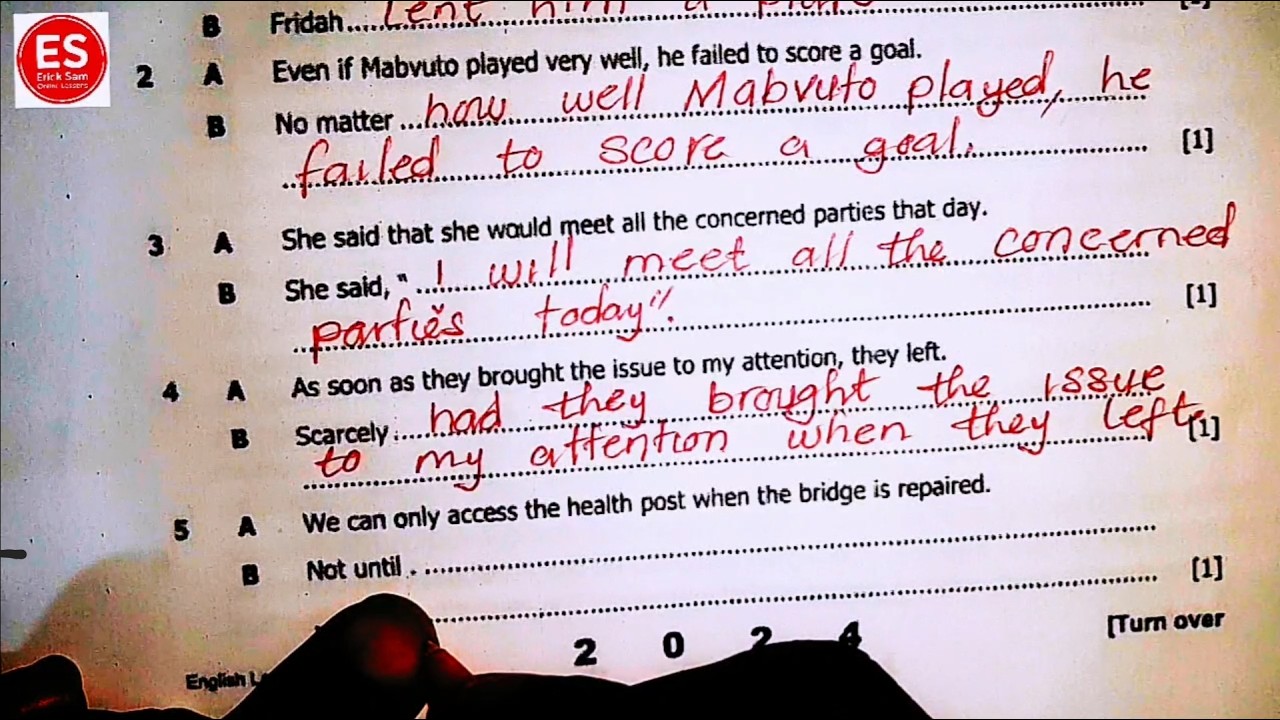 ES
Erick Sam
Online Lessons
B Fridah....Lent him a
2 A Even if Mabvuto played very well, he failed to score a goal.
B No matter ...how well Mabvuto played, he
failed to score a goal. [1]
3 A She said that she would meet all the concerned parties that day.
B She said, " ...I will meet all the concerned
parties today". [1]
4 A As soon as they brought the issue to my attention, they left.
B Scarcely ....had they brought the issue
to my attention when they left. [1]
5 A We can only access the health post when the bridge is repaired.
B Not until ....
[1]
2 0 2 4
[Turn over
English